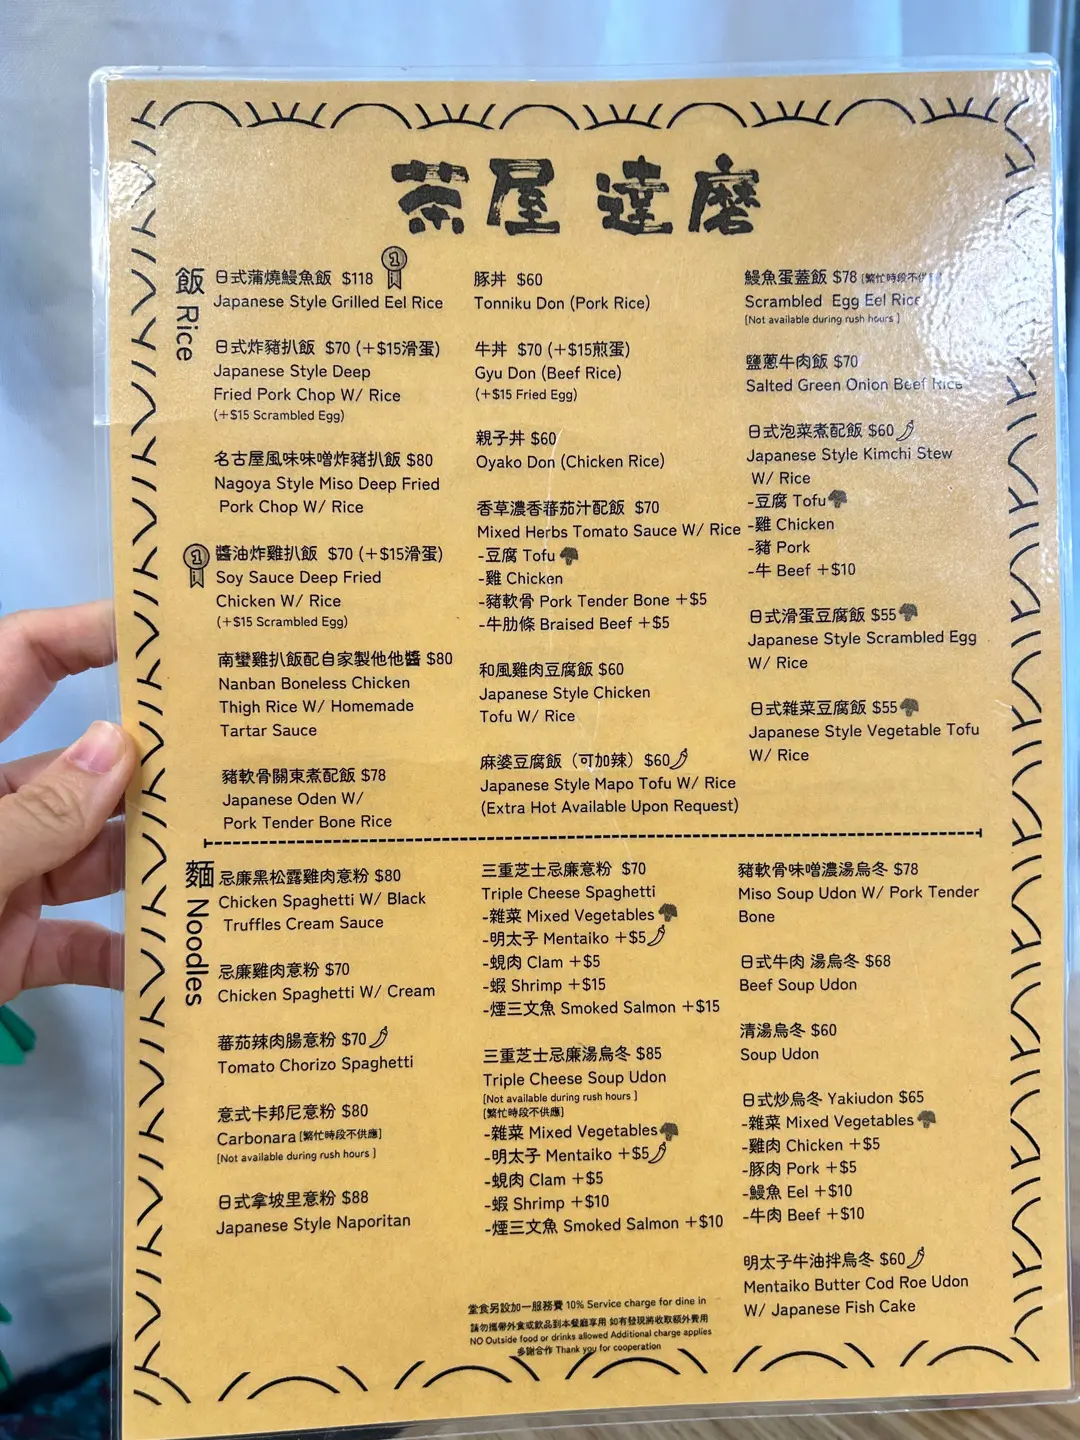 茶屋 達磨
飯 Rice
日式蒲燒鰻魚飯 $118
1
Japanese Style Grilled Eel Rice
日式炸豬扒飯 $70 (+$15滑蛋)
Japanese Style Deep
Fried Pork Chop W/ Rice
(+$15 Scrambled Egg)
名古屋風味味噌炸豬扒飯 $80
Nagoya Style Miso Deep Fried
Pork Chop W/ Rice
1
醬油炸雞扒飯 $70 (+$15滑蛋)
Soy Sauce Deep Fried
Chicken W/ Rice
(+$15 Scrambled Egg)
南蠻雞扒飯配自家製他他醬 $80
Nanban Boneless Chicken
Thigh Rice W/ Homemade
Tartar Sauce
豬軟骨關東煮配飯 $78
Japanese Oden W/
Pork Tender Bone Rice
豚丼 $60
Tonniku Don (Pork Rice)
牛丼 $70 (+$15煎蛋)
Gyu Don (Beef Rice)
(+$15 Fried Egg)
親子丼 $60
Oyako Don (Chicken Rice)
香草濃香蕃茄汁配飯 $70
Mixed Herbs Tomato Sauce W/ Rice
-豆腐 Tofu
-雞 Chicken
-豬軟骨 Pork Tender Bone +$5
-牛肋條 Braised Beef +$5
和風雞肉豆腐飯 $60
Japanese Style Chicken
Tofu W/ Rice
麻婆豆腐飯（可加辣）$60
Japanese Style Mapo Tofu W/ Rice
(Extra Hot Available Upon Request)
鰻魚蛋蓋飯 $78 [繁忙時段不供應]
Scrambled Egg Eel Rice
[Not available during rush hours ]
鹽蔥牛肉飯 $70
Salted Green Onion Beef Rice
日式泡菜煮配飯 $60
Japanese Style Kimchi Stew
W/ Rice
-豆腐 Tofu
-雞 Chicken
-豬 Pork
-牛 Beef +$10
日式滑蛋豆腐飯 $55
Japanese Style Scrambled Egg
W/ Rice
日式雜菜豆腐飯 $55
Japanese Style Vegetable Tofu
W/ Rice
麵 Noodles
忌廉黑松露雞肉意粉 $80
Chicken Spaghetti W/ Black
Truffles Cream Sauce
忌廉雞肉意粉 $70
Chicken Spaghetti W/ Cream
蕃茄辣肉腸意粉 $70
Tomato Chorizo Spaghetti
意式卡邦尼意粉 $80
Carbonara [繁忙時段不供應]
[Not available during rush hours ]
日式拿坡里意粉 $88
Japanese Style Naporitan
三重芝士忌廉意粉 $70
Triple Cheese Spaghetti
-雜菜 Mixed Vegetables
-明太子 Mentaiko +$5
-蜆肉 Clam +$5
-蝦 Shrimp +$15
-煙三文魚 Smoked Salmon +$15
三重芝士忌廉湯烏冬 $85
Triple Cheese Soup Udon
[Not available during rush hours ]
[繁忙時段不供應]
-雜菜 Mixed Vegetables
-明太子 Mentaiko +$5
-蜆肉 Clam +$5
-蝦 Shrimp +$10
-煙三文魚 Smoked Salmon +$10
豬軟骨味噌濃湯烏冬 $78
Miso Soup Udon W/ Pork Tender
Bone
日式牛肉 湯烏冬 $68
Beef Soup Udon
清湯烏冬 $60
Soup Udon
日式炒烏冬 Yakiudon $65
-雜菜 Mixed Vegetables
-雞肉 Chicken +$5
-豚肉 Pork +$5
-鰻魚 Eel +$10
-牛肉 Beef +$10
明太子牛油拌烏冬 $60
Mentaiko Butter Cod Roe Udon
W/ Japanese Fish Cake
堂食另設加一服務費 10% Service charge for dine in
請勿攜帶外食或飲品到本餐廳享用 如有發現將收取額外費用
NO Outside food or drinks allowed Additional charge applies
多謝合作 Thank you for cooperation